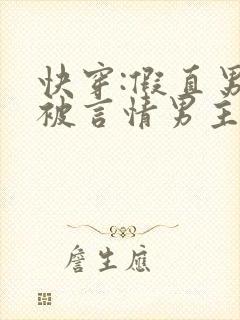 快穿:假直男
被言情男主
詹生應